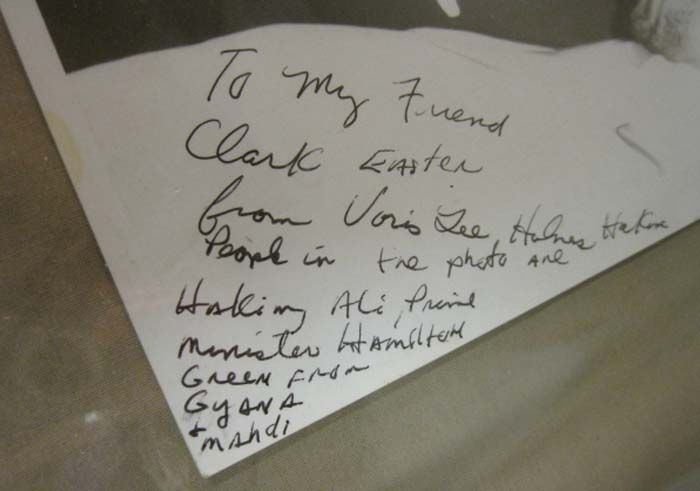 To My Friend
Clark Easter
from Voris Lee
People in the photo are
Ali, Prime
Minister Hamilton
Green From
Gyana
+ mahdi